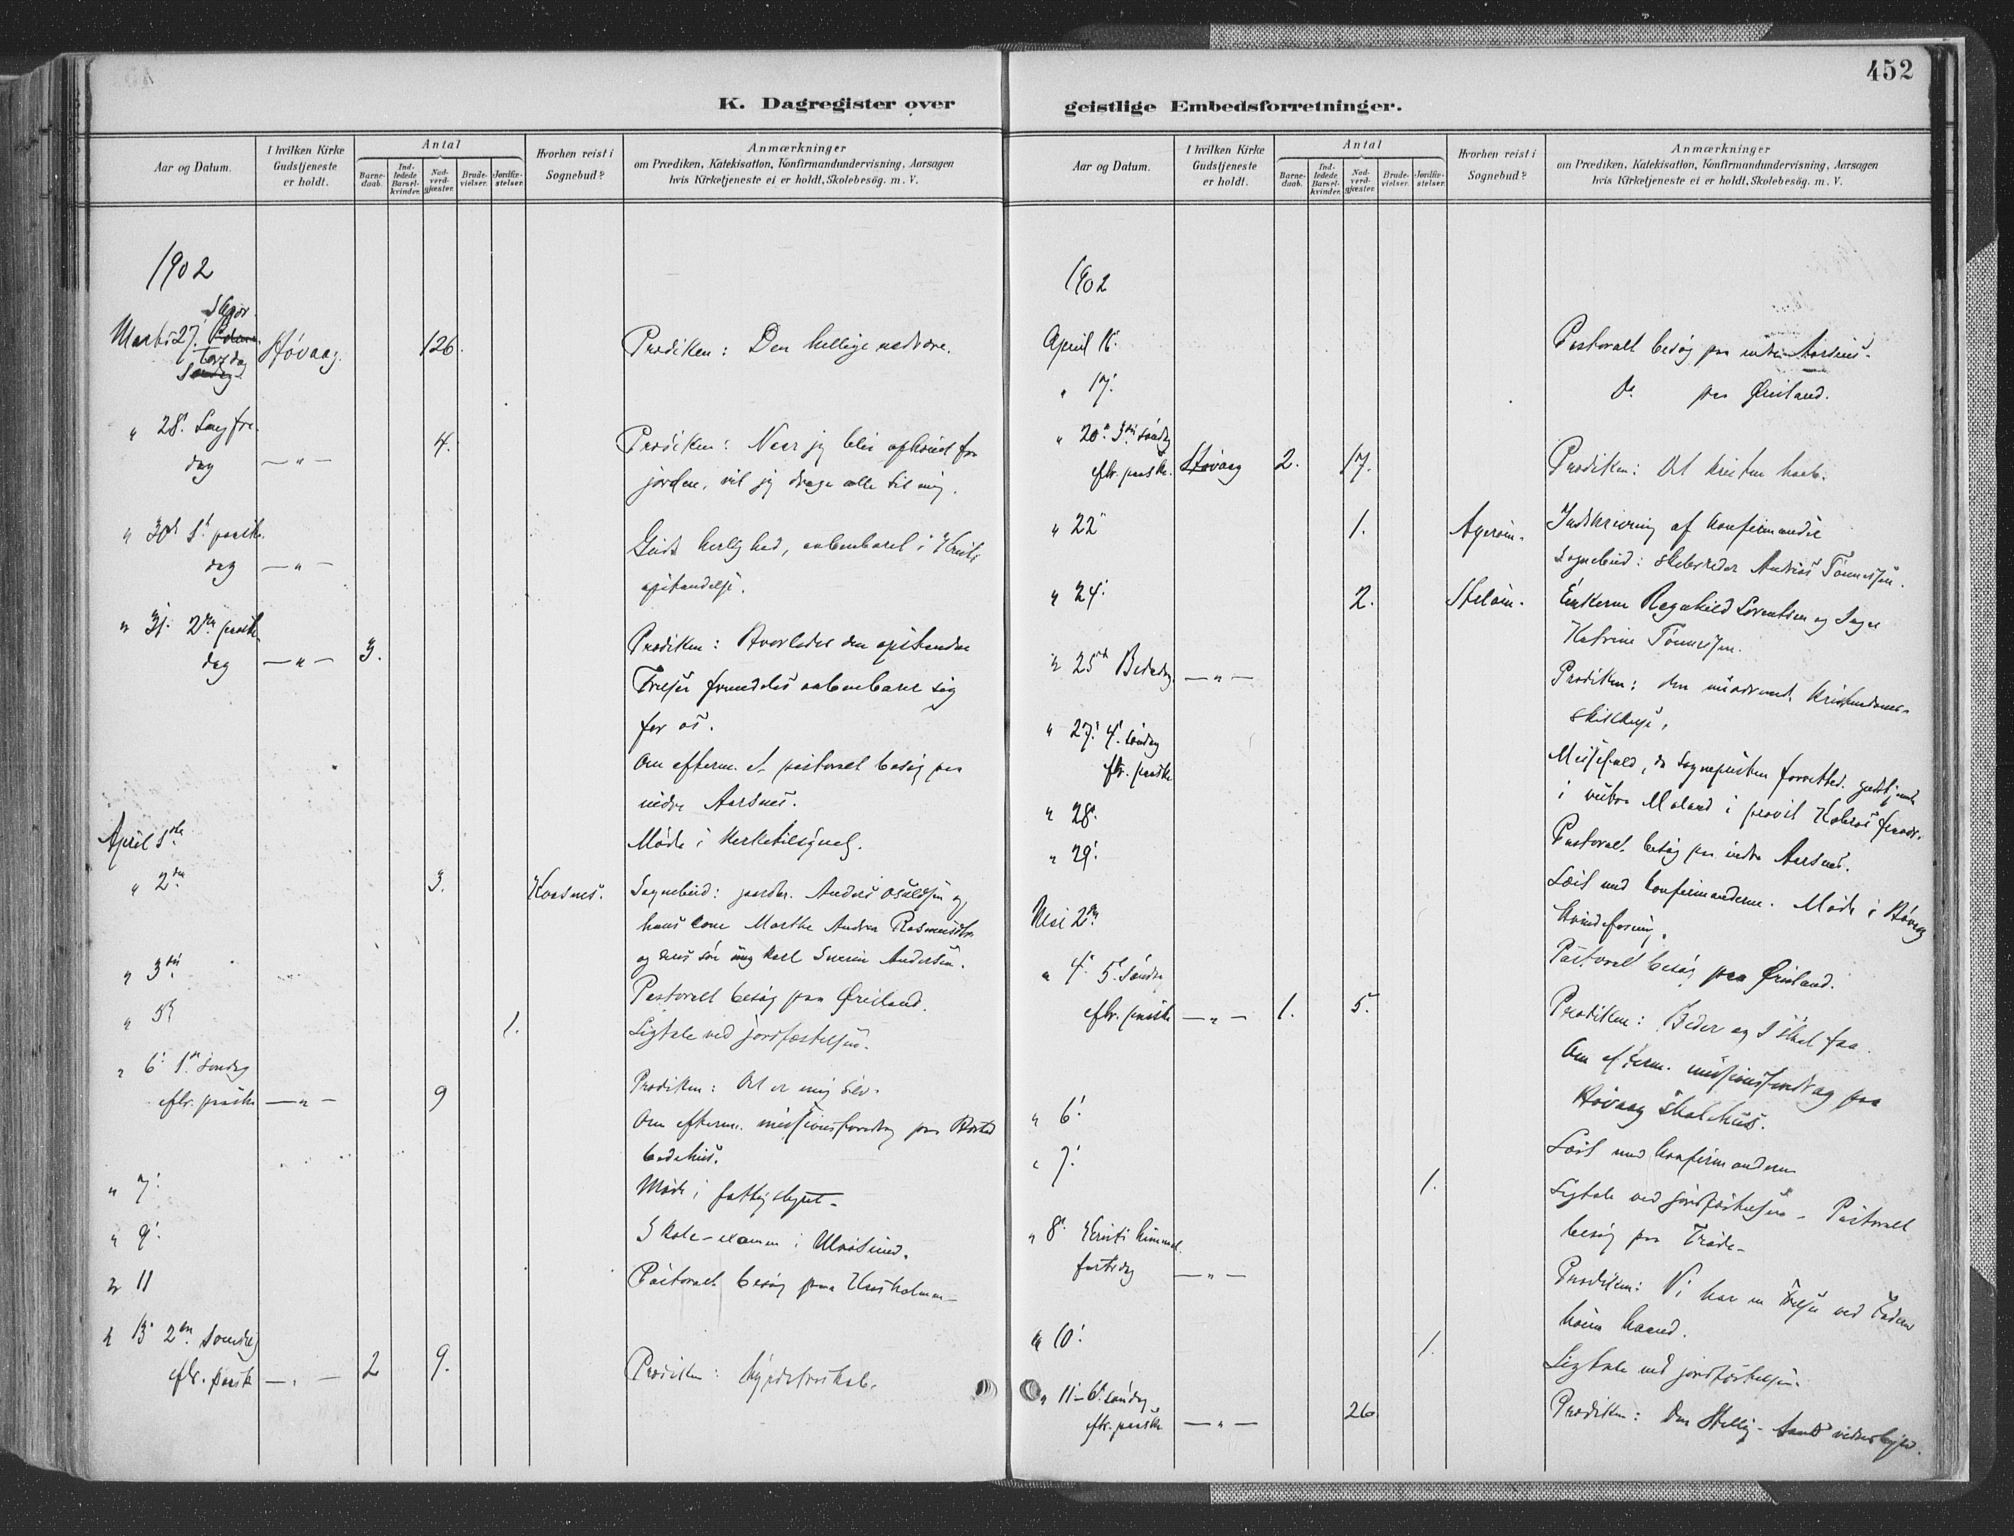 452
K. Dagregister over
Aar og Datum.
I hvilken Kirke Gudstjeneste er holdt.
Antal
Barnedaab.
Indledede Barselkvinder.
Nadverdgjæster.
Brudevielser.
Jordfæstelser.
Hvorhen reist i Sognebud?
Anmærkninger
om Prædiken, Katekisation, Konfirmandundervisning, Aarsagen
hvis Kirketjeneste ei er holdt, Skolebesøg. m. V.
1902
Skjær
Marts 27. torsdag Høvaag. 126. Prædiken: Den hellige nadvere.
" 28. Langfre- 4. Prædiken: Naar jeg blir ophøiet fra
dag —"— jorden, vil jeg drage alle til mig.
" 30te 1ste paaske
dag —"— Guds herlighed, aabenbaret i Kristi
opstandelse.
" 31. 2den paaske
dag —"— 3. Prædiken: Hvorledes den opstandne
Frelser fremdeles aabenbarer sig
for os.
Om efterm. et pastoralt besøg paa
indre Aarsnes.
April 1ste Møde i kirketilsynet.
" 2den 3. Kvasnes. Sognebud: gaardbr. Anders Osuldsen og
hans kone Marthe Andrea Rasmusdtr
og deres søn ung Karl Severin Andersen.
" 3die Pastoralt besøg paa Øreland.
" 5te 1. Ligtale ved jordfæstelsen.
" 6. 1ste søndag
eftr. paaske —"— 9 Prædiken: Det er mig selv.
Om efterm. missionsforedrag paa
bedehus.
" 7. Møde i fattigstyret.
" 9. Skole-examen i Ulvøsund.
" 11 Pastoralt besøg paa
" 13. 2den søndag
eftr. paaske —"— 2 9. Prædiken: Hyrdetroskab.
geistlige Embedsforretninger.
Aar og Datum.
I hvilken Kirke Gudstjeneste er holdt.
Antal
Barnedaab.
Indledede Barselkvinder.
Nadverdgjæster.
Brudevielser.
Jordfæstelser.
Hvorhen reist i Sognebud?
Anmærkninger
om Prædiken, Katekisation, Konfirmandundervisning, Aarsagen
hvis Kirketjeneste ei er holdt, Skolebesøg. m. V.
1902
April 16. Pastoralt besøg paa indre Aarsnes.
" 17. Do paa Øreland.
" 20. 3die søndag
eftr. paaske. Høvaag 2. 17. Prædiken: Det kristne haab.
" 22 1. Agerøen. Indskrivning af konfirmander
Sognebud: skibsreder Andreas Tønnessen.
" 24. 2. Enkerne Ragnhild Lorentsen og Inger
Katrine Tønnessen.
" 25de Bededag —"— Prædiken: den kristendoms-
skikkelse.
" 27. 4. søndag
eftr. paaske Messefald, da sognepresten forrettet gudstjeneste
i vestre Moland i provst fravær.
" 28. Pastoralt besøg paa indre Aarsnes.
" 29. Læst med konfirmanderne. Møde i Høvaag
kvindeforening.
Mai 2den Pastoralt besøg paa Øreland.
" 4. 5. søndag
eftr. paaske —"— 1. 5. Prædiken: Beder og I skal faa.
Om efterm. missionsforedrag paa
Høvaag skolehus.
" 6. Læst med konfirmanderne
" 7. 1. Ligtale ved jordfæstelsen. Pastoralt
besøg paa
" 8. Kristi himmel-
fartsdag —"— Prædiken: Vi har en Frelser ved Faderens
høire haand.
" 10. 1. Ligtale ved jordfæstelsen.
" 11. 6. søndag
eftr. paaske —"— 26 Prædiken: Den Hellig-Aands vidnesbyrd.